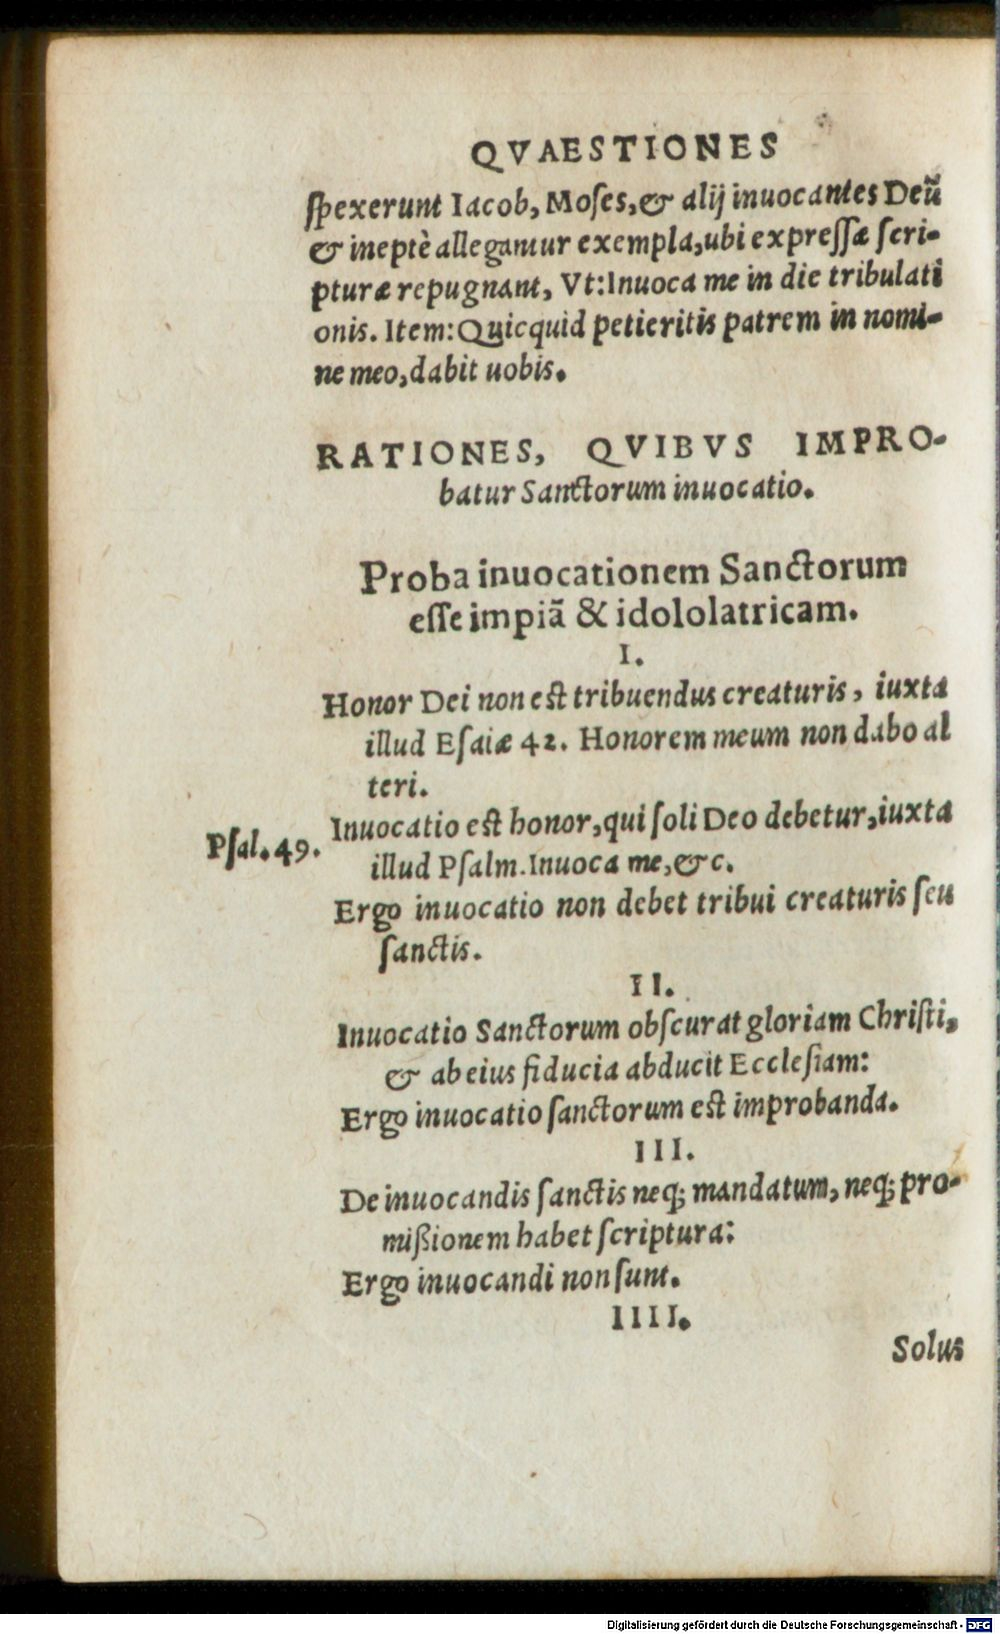 QVAESTIONES
ſpexerunt Iacob, Moſes, & alij inuocantes Deũ
& ineptè allegantur exempla, ubi expreſſæ ſcri-
pturæ repugnant, Vt: Inuoca me in die tribulati
onis. Item: Quicquid petieritis patrem in nomi-
ne meo, dabit uobis.
RATIONES, QVIBVS IMPRO-
batur Sanctorum inuocatio.
Proba inuocationem Sanctorum
eſſe impiã & idololatricam.
I.
Honor Dei non eſt tribuendus creaturis, iuxta
illud Eſaiæ 42. Honorem meum non dabo al
teri.
Inuocatio eſt honor, qui ſoli Deo debetur, iuxta
Pſal. 49.
illud Pſalm. Inuoca me, &c.
Ergo inuocatio non debet tribui creaturis ſeu
ſanctis.
II.
Inuocatio Sanctorum obſcurat gloriam Chriſti,
& ab eius fiducia abducit Eccleſiam:
Ergo inuocatio ſanctorum eſt improbanda.
III.
De inuocandis ſanctis neq; mandatum, neq; pro-
mißionem habet ſcriptura:
Ergo inuocandi non ſunt.
IIII.
Solus
Digitalisierung gefördert durch die Deutsche Forschungsgemeinschaft - DFG